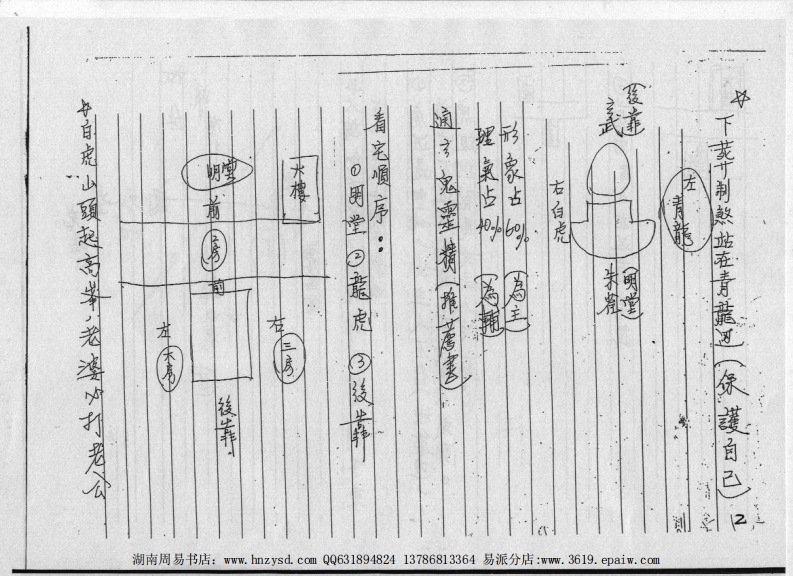 下葬制煞站在青龍位(保護自己)
2
左青龍
(後靠)
玄武
(明堂)
朱雀
右白虎
形象占60% (為主)
理氣占40% (為輔)
鬼靈 (推薦書)
看宅順序：
①明堂 ②龍虎 ③後靠
大樓
明堂
前
二房
前
右三房
左大房
後靠
白虎山頭起高峯，老婆必打老公
湖南周易书店：www.hnzysd.com QQ631894824 13786813364 易派分店:www.3619.epaiw.com